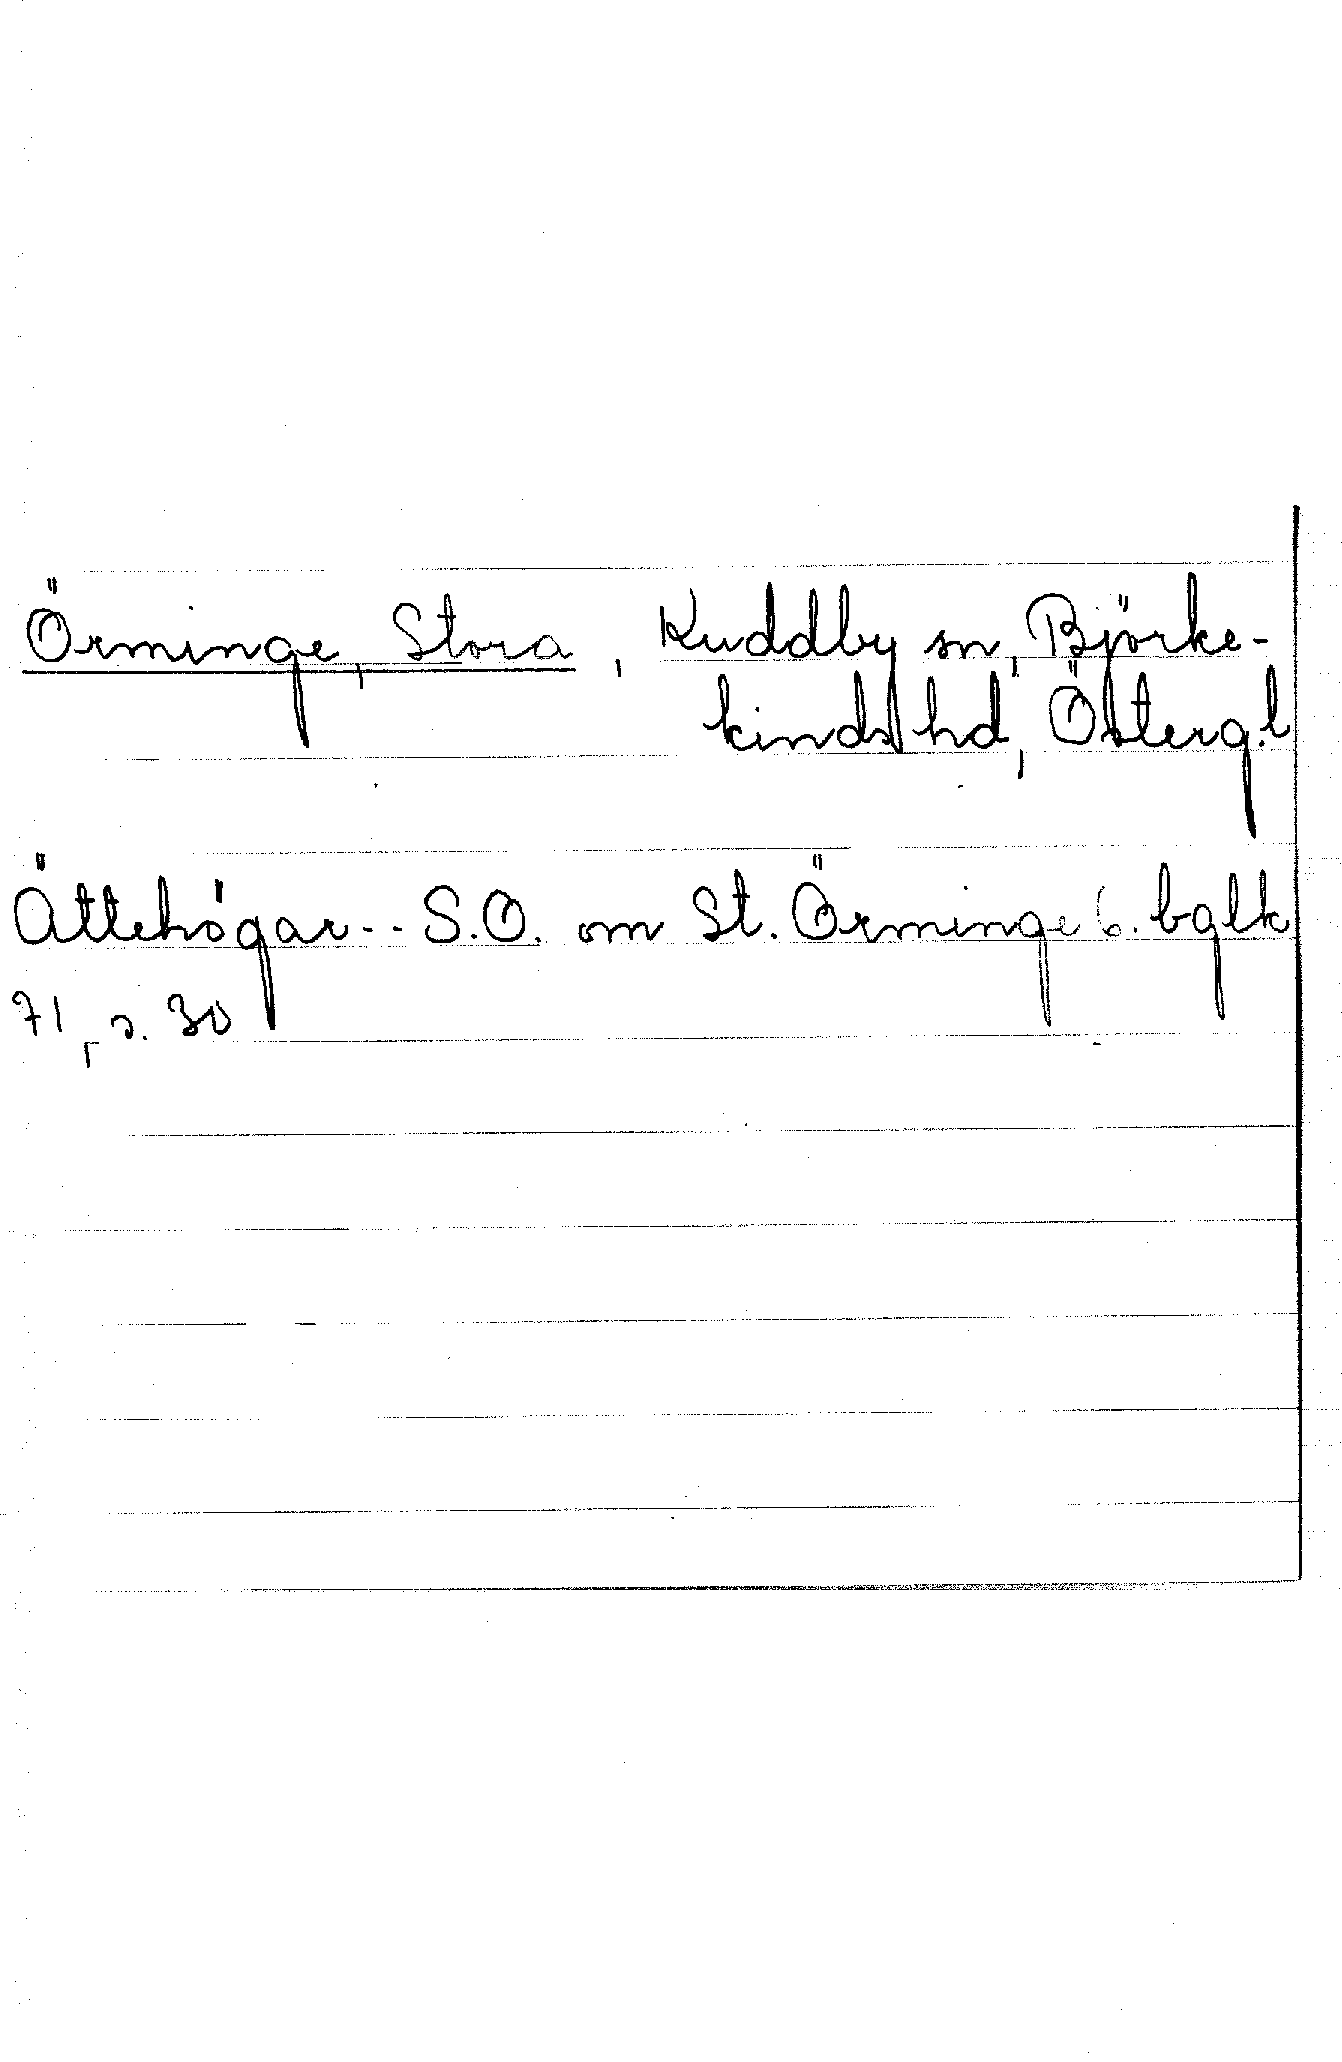 Örminge, Stora, Kuddby sn, Björke-
kinds hd, Österg. l
Ättehögar.. S.O. om St. Örminge 6. bglk
71, s. 30